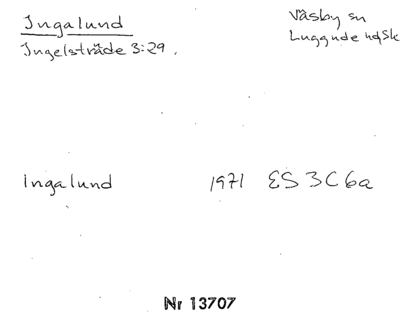 Ingalund
Ingelsträde 3:29.
Väsby sn
Luggude hd, Sk
Ingalund 1971 ES 3C6a
Nr 13707